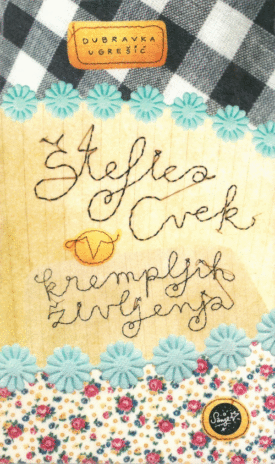 DUBRAVKA
UGREŠIĆ
Štefica
Cvek
v
krempljih
življenja